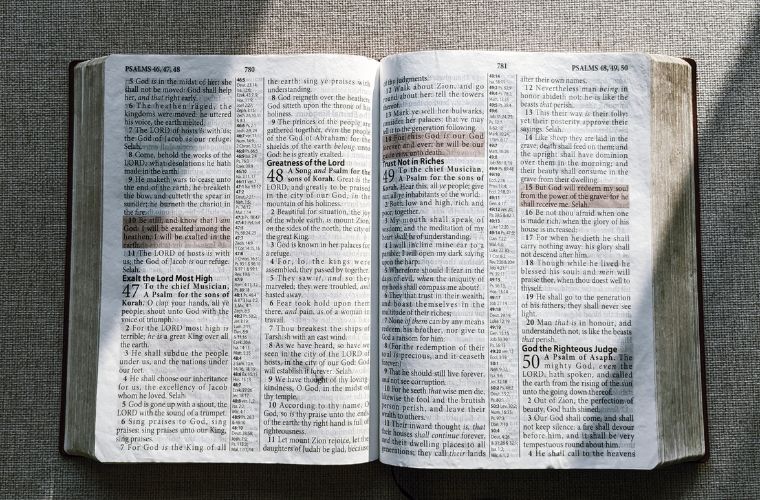 PSALMS 46, 47, 48
780
5 God is in the midst of her; she
shall not be moved: God shall help
her, and that right early.
6 The heathen raged, the
kingdoms were moved: he uttered
his voice, the earth melted.
7 The LORD of hosts is with us;
the God of Jacob is our refuge.
Selah.
8 Come, behold the works of the
LORD, what desolations he hath
made in the earth.
9 He maketh wars to cease unto
the end of the earth; he breaketh the
bow, and cutteth the spear in
sunder; he burneth the chariot in
the fire.
10 Be still, and know that I am
God: I will be exalted among the
heathen, I will be exalted in the
earth.
11 The LORD of hosts is with
us; the God of Jacob is our refuge.
Selah.
Exalt the Lord Most High
47 To the chief Musician,
A Psalm for the sons of
Korah. O clap your hands, all ye
people; shout unto God with the
voice of triumph.
2 For the LORD most high is
terrible; he is a great King over all
the earth.
3 He shall subdue the people
under us, and the nations under
our feet.
4 He shall choose our inheritance
for us, the excellency of Jacob
whom he loved. Selah.
5 God is gone up with a shout, the
LORD with the sound of a trumpet.
6 Sing praises to God, sing
praises: sing praises unto our King,
sing praises.
7 For God is the King of all
the earth: sing ye praises with
understanding.
8 God reigneth over the heathen:
God sitteth upon the throne of his
holiness.
9 The princes of the people are
gathered together, even the people
of the God of Abraham: for the
shields of the earth belong unto
God: he is greatly exalted.
Greatness of the Lord
48 A Song and Psalm for the
sons of Korah. Great is the
LORD, and greatly to be praised
in the city of our God, in the
mountain of his holiness.
2 Beautiful for situation, the joy
of the whole earth, is mount Zion,
on the sides of the north, the city of
the great King.
3 God is known in her palaces for
a refuge.
4 For, lo, the kings were
assembled, they passed by together.
5 They saw it, and so they
marveled; they were troubled, and
hasted away.
6 Fear took hold upon them
there, and pain, as of a woman in
travail.
7 Thou breakest the ships of
Tarshish with an east wind.
8 As we have heard, so have we
seen in the city of the LORD of
hosts, in the city of our God: God
will establish it for ever. Selah.
9 We have thought of thy loving-
kindness, O God, in the midst of
thy temple.
10 According to thy name, O
God, so is thy praise unto the ends
of the earth: thy right hand is full of
righteousness.
11 Let mount Zion rejoice, let the
daughters of Judah be glad, because
781
PSALMS 48, 49, 50
of thy judgments.
12 Walk about Zion, and go
round about her: tell the towers
thereof.
13 Mark ye well her bulwarks,
consider her palaces; that ye may
tell it to the generation following.
14 For this God is our God
for ever and ever: he will be our
guide even unto death.
Trust Not in Riches
49 To the chief Musician,
A Psalm for the sons of
Korah. Hear this, all ye people; give
ear, all ye inhabitants of the world:
2 Both low and high, rich and
poor, together.
3 My mouth shall speak of
wisdom; and the meditation of my
heart shall be of understanding.
4 I will incline mine ear to a
parable: I will open my dark saying
upon the harp.
5 Wherefore should I fear in the
days of evil, when the iniquity of
my heels shall compass me about?
6 They that trust in their wealth,
and boast themselves in the
multitude of their riches;
7 None of them can by any means
redeem his brother, nor give to
God a ransom for him:
8 (For the redemption of their
soul is precious, and it ceaseth
for ever:)
9 That he should still live for ever,
and not see corruption.
10 For he seeth that wise men die,
likewise the fool and the brutish
person perish, and leave their
wealth to others.
11 Their inward thought is, that
their houses shall continue for ever,
and their dwelling places to all
generations; they call their lands
after their own names.
12 Nevertheless man being in
honour abideth not: he is like the
beasts that perish.
13 This their way is their folly:
yet their posterity approve their
sayings. Selah.
14 Like sheep they are laid in the
grave; death shall feed on them; and
the upright shall have dominion
over them in the morning; and
their beauty shall consume in the
grave from their dwelling.
15 But God will redeem my soul
from the power of the grave: for he
shall receive me. Selah.
16 Be not thou afraid when one
is made rich, when the glory of his
house is increased;
17 For when he dieth he shall
carry nothing away: his glory shall
not descend after him.
18 Though while he lived he
blessed his soul: and men will
praise thee, when thou doest well to
thyself.
19 He shall go to the generation
of his fathers; they shall never see
light.
20 Man that is in honour, and
understandeth not, is like the beasts
that perish.
God the Righteous Judge
50 A Psalm of Asaph. The
mighty God, even the
LORD, hath spoken, and called
the earth from the rising of the sun
unto the going down thereof.
2 Out of Zion, the perfection of
beauty, God hath shined.
3 Our God shall come, and shall
not keep silence: a fire shall devour
before him, and it shall be very
tempestuous round about him.
4 He shall call to the heavens